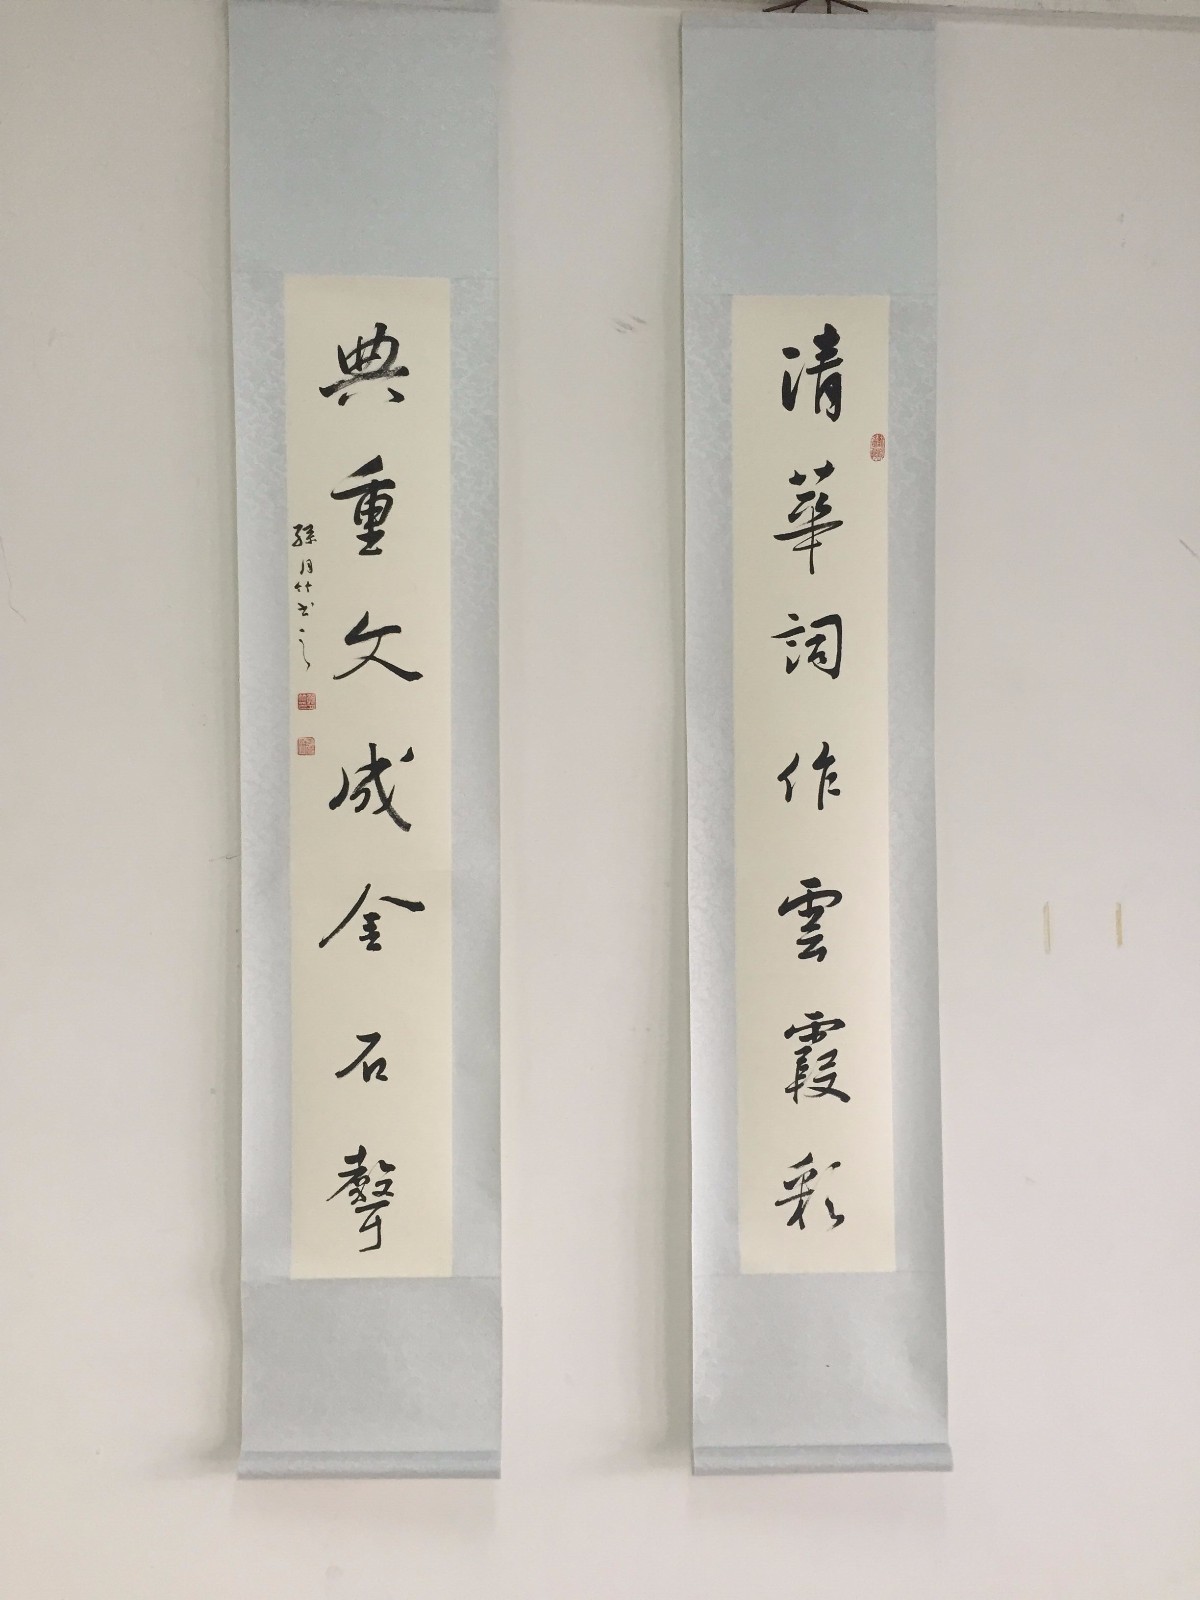 清華詞作雲霞彩
典重文成金石聲
孫月竹書之